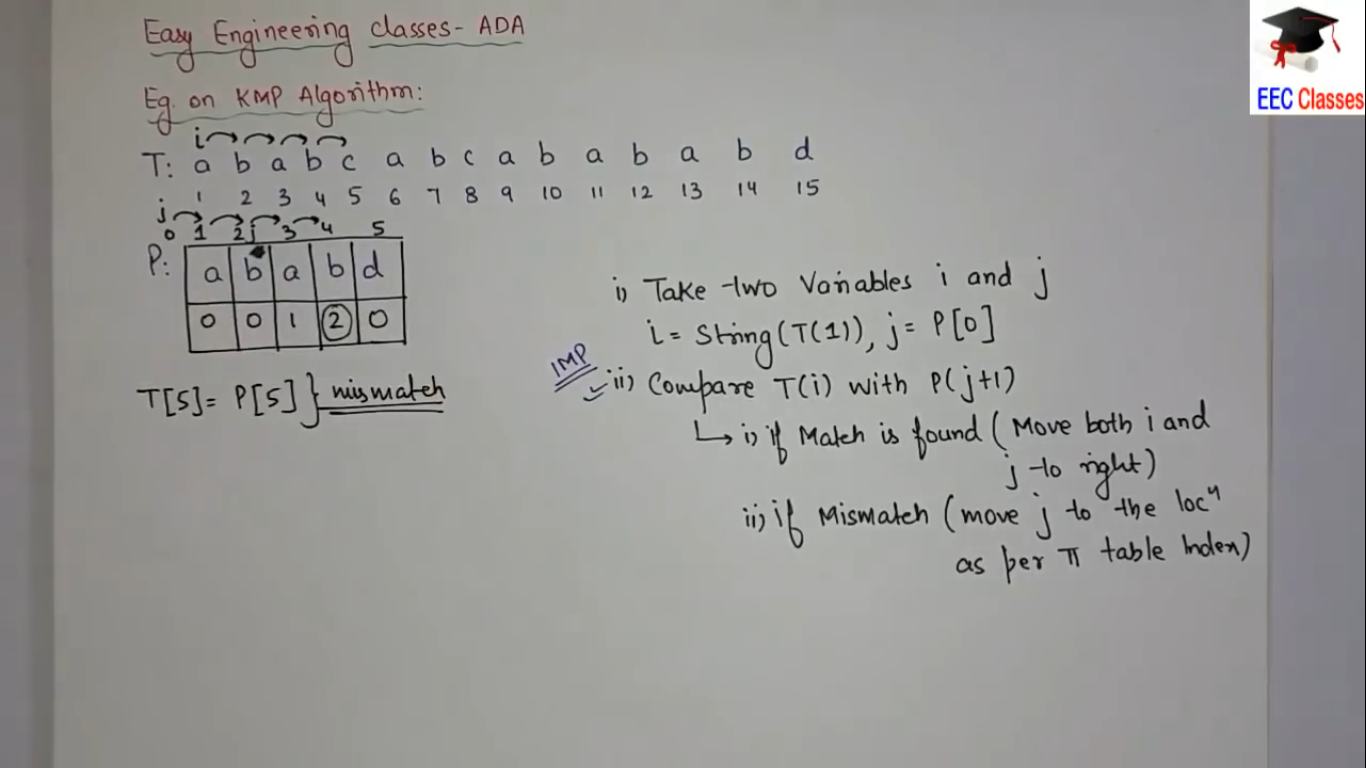 Easy Engineering classes- ADA
EEC Classes
Eg. on KMP Algorithm:
i
T: a b a b c a b c a b a b a b d
1 2 3 4 5 6 7 8 9 10 11 12 13 14 15
j
0 1 2 j 3 4 5
P: a b a b d
0 0 1 2 0
T[5]= P[5] } mismatch
i) Take two Variables i and j
i= String(T(1)), j= P[0]
IMP
ii) Compare T(i) with P(j+1)
i) if Match is found (Move both i and
j to right)
ii) if Mismatch (move j to the locⁿ
as per π table Index)